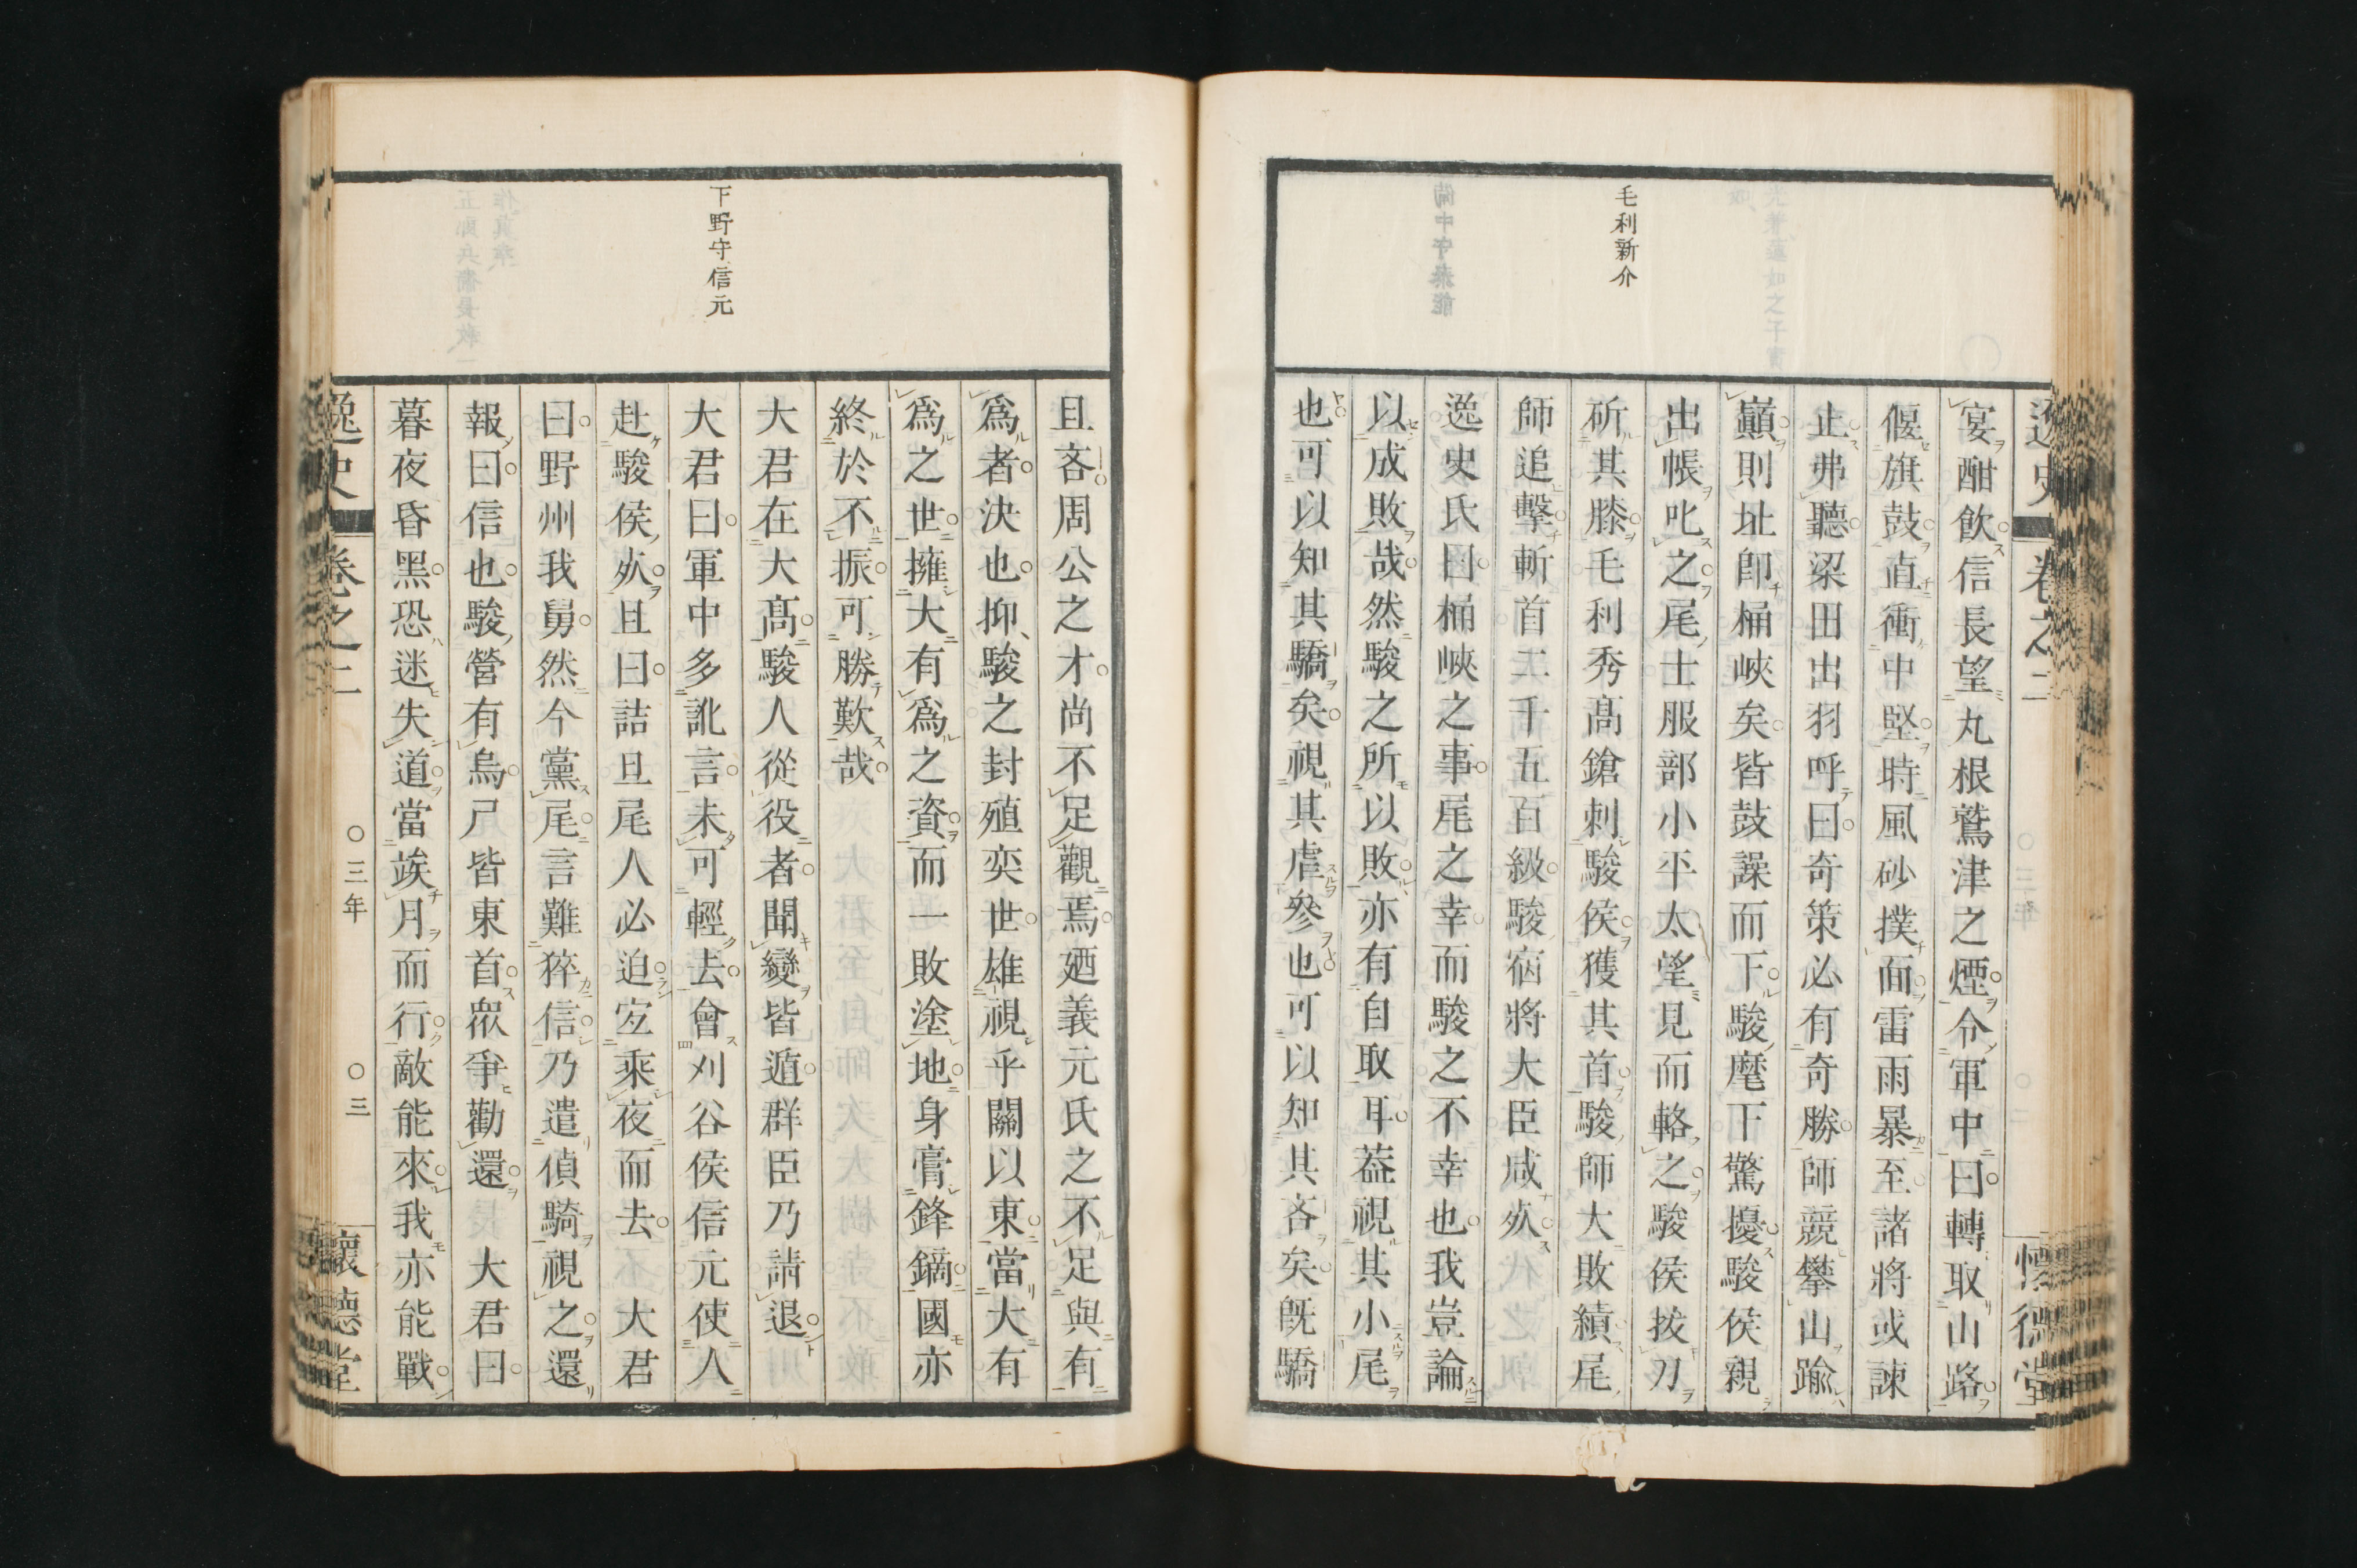 毛利新介
逸史 卷之二 懷德堂
宴酣飮信長望丸根鷲津之煙令軍中曰轉取山路
偃旗鼓直衝中堅時風砂撲面雷雨暴至諸將或諫
止弗聽梁田出羽呼曰奇策必有奇勝師競攀山踰
巓則址卽桶峽矣皆鼓譟而下駿麾下驚擾駿侯親
出帳叱之尾士服部小平太望見而輅之駿侯拔刀
斫其膝毛利秀髙鎗刺駿侯獲其首駿師大敗績尾
師追擊斬首二千五百級駿宿將大臣咸㱙
逸史氏曰桶峽之事尾之幸而駿之不幸也我豈論
以成敗哉然駿之所以敗亦有自取耳葢視其小尾
也可以知其驕矣視其虐參也可以知其吝矣旣驕
下野守信元
且吝周公之才尚不足觀焉廼義元氏之不足與有
爲者決也抑駿之封殖奕世雄視乎關以東當大有
爲之世擁大有爲之資而一敗塗地身膏鋒鏑國亦
終於不振可勝歎哉
大君在大髙駿人從役者聞變皆遁群臣乃請退
大君曰軍中多訛言未可輕去會刈谷侯信元使人
赴駿侯㱙且曰詰旦尾人必迫宐乘夜而去 大君
曰野州我舅然今黨尾言難猝信乃遣偵騎視之還
報曰信也駿營有烏尸皆東首衆爭勸還 大君曰
暮夜昏黑恐迷失道當竢月而行敵能來我亦能戰
逸史 卷之二 〇三年 〇三 懷德堂